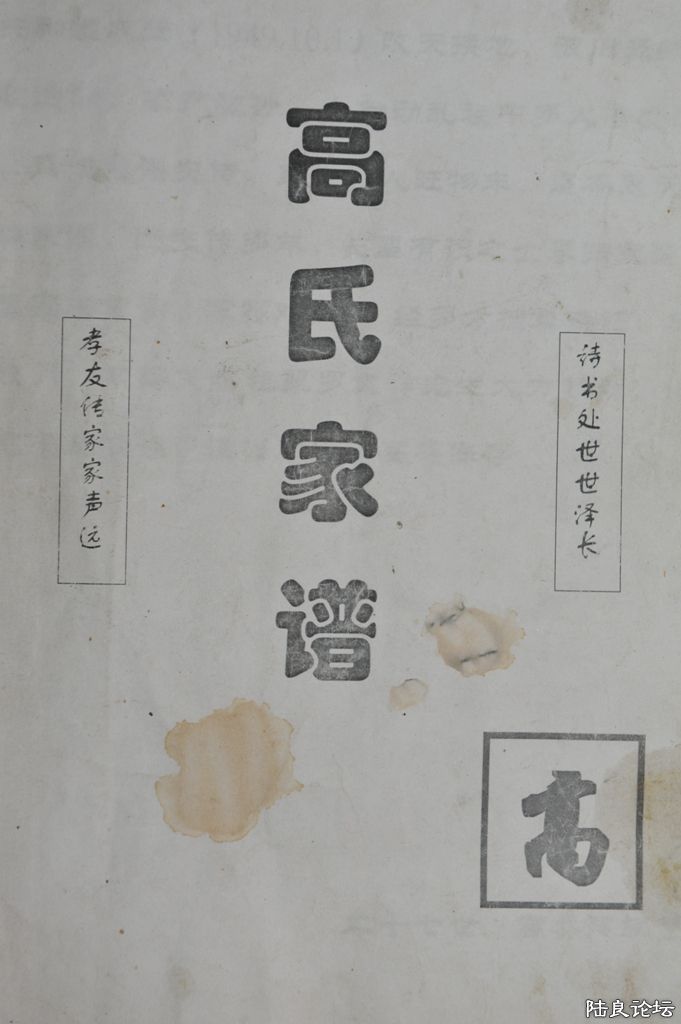 高氏家谱
诗书处世世泽长
孝友传家家声远
高
陆良论坛